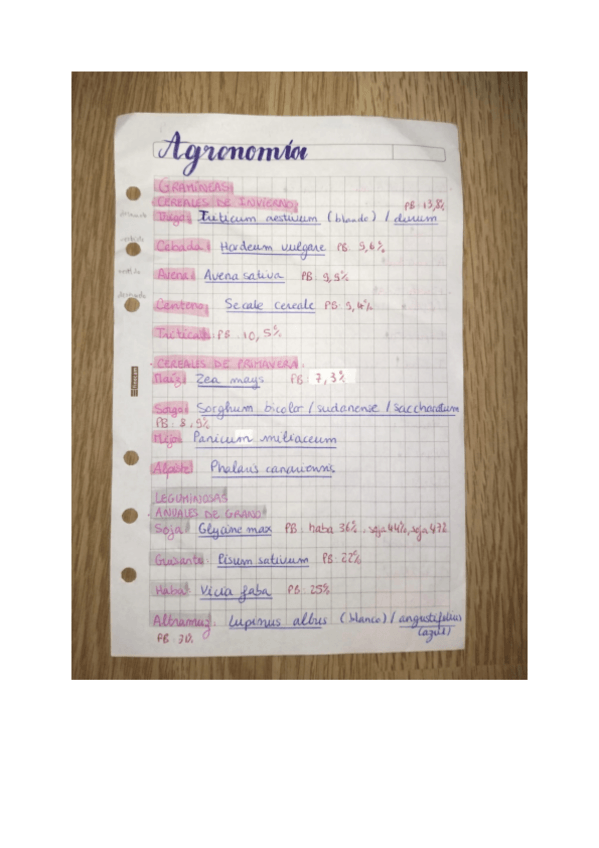 Agronomía
GRAMÍNEAS
CEREALES DE INVIERNO PB: 13,8%
Trigo: Triticum aestivum (blando) / durum
Cebada: Hordeum vulgare PB: 9,6%
Avena: Avena sativa PB: 9,9%
Centeno: Secale cereale PB: 9,4%
Triticale: PB: 10,5%
CEREALES DE PRIMAVERA
Maíz: Zea mays PB: 7,3%
Sorgo: Sorghum bicolor / sudanense / saccharatum
PB: 8,9%
Mijo: Panicum miliaceum
Alpiste: Phalaris canariensis
LEGUMINOSAS
ANUALES DE GRANO
Soja: Glycine max PB: haba 36%, soja 44%, soja 47%
Guisante: Pisum sativum PB: 22%
Haba: Vicia faba PB: 25%
Altramuz: Lupinus albus (blanco) / angustifolius
(azul)
PB: 30%